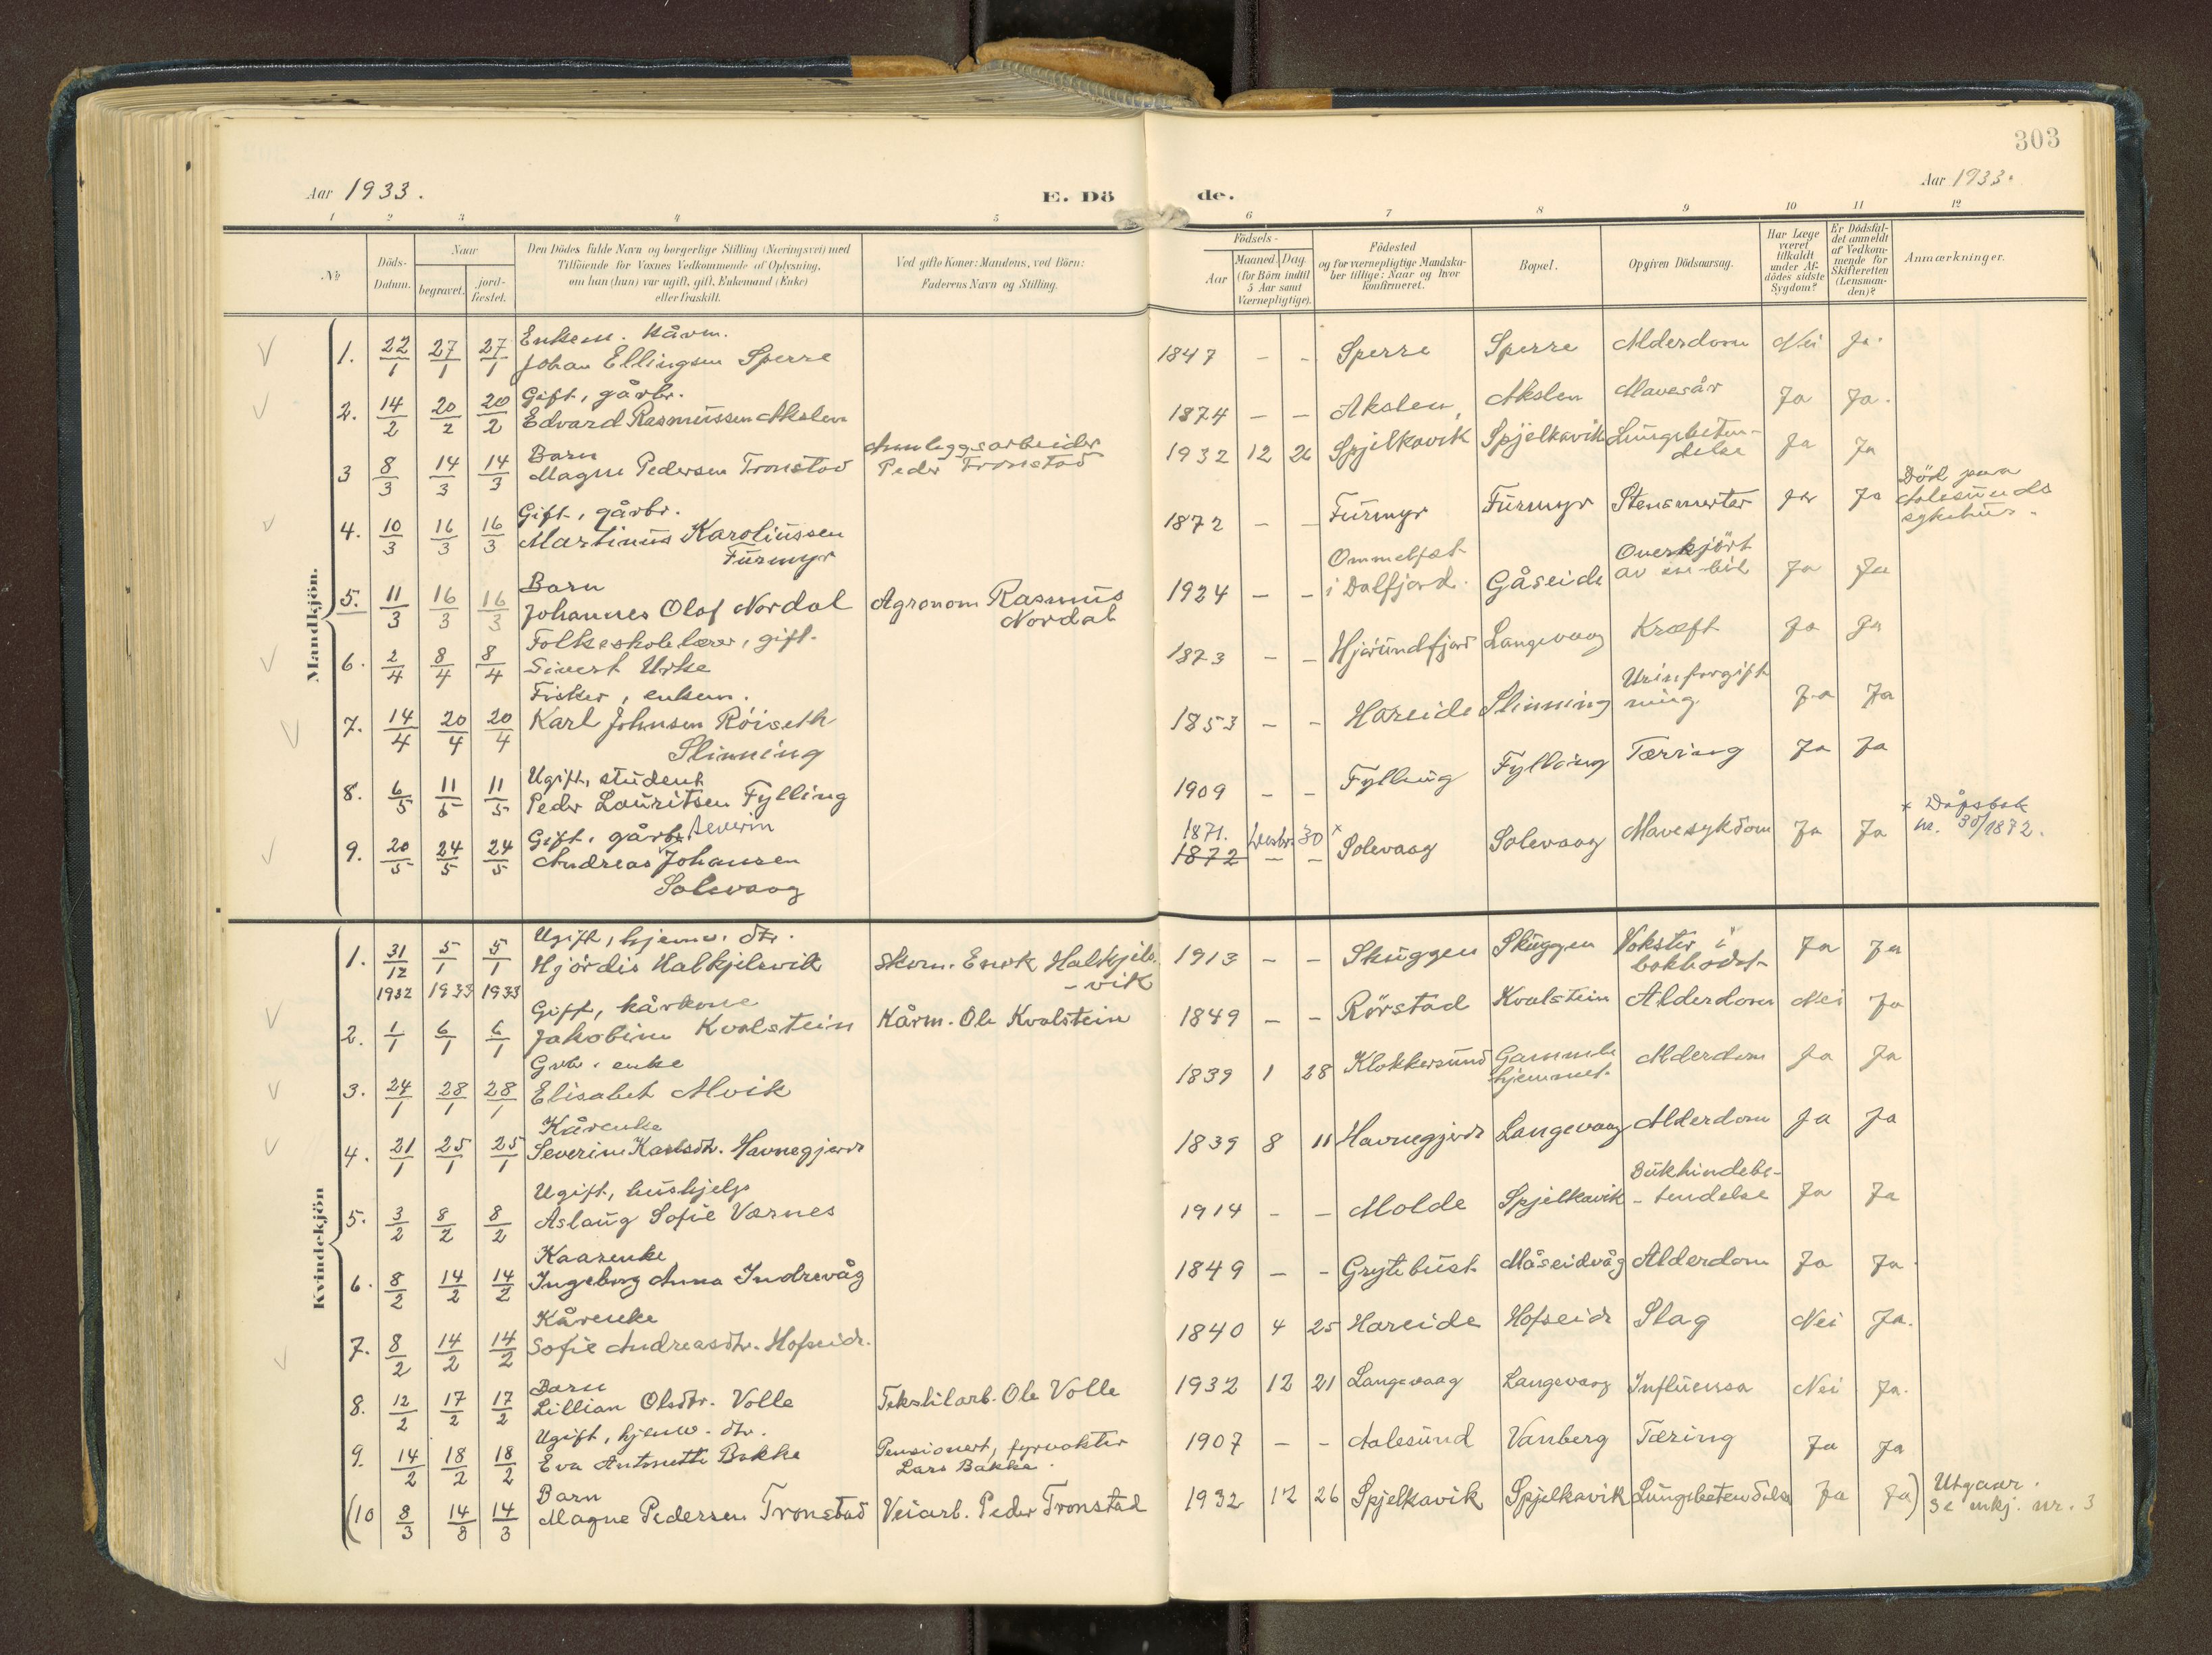 303
Aar 1933. E. Dö de. Aar 1933.
1 2 3 4 5 6 7 8 9 10 11 12
№ Döds-Datum. Naar begravet. jord-fæstet.
Den Dödes fulde Navn og borgerlige Stilling (Næringsvei) med
Tilföiende for Voxnes Vedkommende af Oplysning,
om han (hun) var ugift, gift, Enkemand (Enke)
eller fraskilt.
Ved gifte Koner: Mandens, ved Börn:
Faderens Navn og Stilling.
Födsels-
Aar Maaned. Dag
(for Börn indtil
5 Aar samt
Værnepligtige).
Födested
og for værnepligtige Mandska-
ber tillige: Naar og hvor
konfirmeret.
Bopæl.
Opgiven Dödsaarsag.
Har Læge
været
tilkaldt
under Af-
dödes sidste
Sygdom?
Er Dödsfal-
det anmeldt
af Vedkom-
mende for
Skifteretten
(Lensman-
den)?
Anmærkninger.
Mandkjön.
Enkem. kårm.
1. 22/1 27/1 27/1 Johan Ellingsen Sperre 1847 - - Sperre Sperre Alderdom Nei Ja.
Gift, gårbr.
2. 14/2 20/2 20/2 Edvard Rasmussen Akslen 1874 - - Akslen, Akslen Mavesår Ja Ja.
Barn Annleggsarbeider
3 8/3 14/3 14/3 Magne Pedersen Tronstad Peder Tronstad 1932 12 26 Spjelkavik Spjelkavik Lungebeten-
delse Ja Ja
Gift, gårbr.
4. 10/3 16/3 16/3 Martinus Karoliussen
Furmyr 1872 - - Furmyr Furmyr Stensmerter Ja Ja Död paa
Aalesunds
sykehus.
Barn
5. 11/3 16/3 16/3 Johannes Olaf Nordal Agronom Rasmus
Nordal 1924 - - Ommelfæt
i Dalfjord. Gåseide Overkjört
av en bil Ja Ja
Folkeskolelærer, gift.
6. 2/4 8/4 8/4 Sivert Urke 1873 - - Hjörundfjord Langevaag Kræft Ja Ja
Fisker, enkem.
7. 14/4 20/4 20/4 Karl Johnsen Röiseth
Slinning 1853 - - Hareide Slinning Urinforgift
ning Ja Ja
Ugift, student
8. 6/5 11/5 11/5 Peder Lauritsen Fylling 1909 - - Fylling Fylling Tæring Ja Ja
Gift, gårbr. Severin
9. 20/5 24/5 24/5 Andreas Johansen
Solevaag 1871. Desbr. 30 x
1872 - - Solevaag Solevaag Mavesykdom Ja Ja x Dåpsbok
nr. 30/1872.
Kvindekjön
Ugift, hjemv. dtr.
1. 31/12 1932 5/1 1933 5/1 1933 Hjördis Halkjelsvik Skom. Enok Halkjels
-vik 1913 - - Skuggen Skuggen Vokster i
bakhodet Ja Ja
Gift, kårkone
2. 1/1 6/1 6/1 Jakobine Kvalstein Kårm. Ole Kvalstein 1849 - - Rörstad Kvalstein Alderdom Nei Ja
Grb. enke
3. 24/1 28/1 28/1 Elisabet Alvik 1839 1 28 Klokkersund Gammle
hjemmet. Alderdom Ja Ja
Kårenke
4. 21/1 25/1 25/1 Severine Karlsdtr. Havnegjerde 1839 8 11 Havnegjerde Langevaag Alderdom Ja Ja
Ugift, hushjelp
5. 3/2 8/2 8/2 Aslaug Sofie Værnes 1914 - - Molde Spjelkavik Bukhindebe-
-tendelse Ja Ja
Kaarenke
6. 8/2 14/2 14/2 Ingeborg Anna Indrevåg 1849 - - Grytebust Måseidvåg Alderdom Ja Ja
Kårenke
7. 8/2 14/2 14/2 Sofie Andreasdtr. Hofseide. 1840 4 25 Hareide Hofseide Slag Nei Ja.
Barn
8. 12/2 17/2 17/2 Lillian Olsdtr. Volle Tekstilarb. Ole Volle 1932 12 21 Langevaag Langevaag Influensa Nei Ja.
Ugift, hjemv. dtr.
9. 14/2 18/2 18/2 Eva Antonette Bakke Pensionert, fyrvokter
Lars Bakke. 1907 - - Aalesund Vanberg Tæring Ja Ja
Barn
(10 8/3 14/3 14/3 Magne Pedersen Tronstad Veiarb. Peder Tronstad 1932 12 26 Spjelkavik Spjelkavik Lungebetendelse Ja Ja) Utgaar.
Se mkj. nr. 3